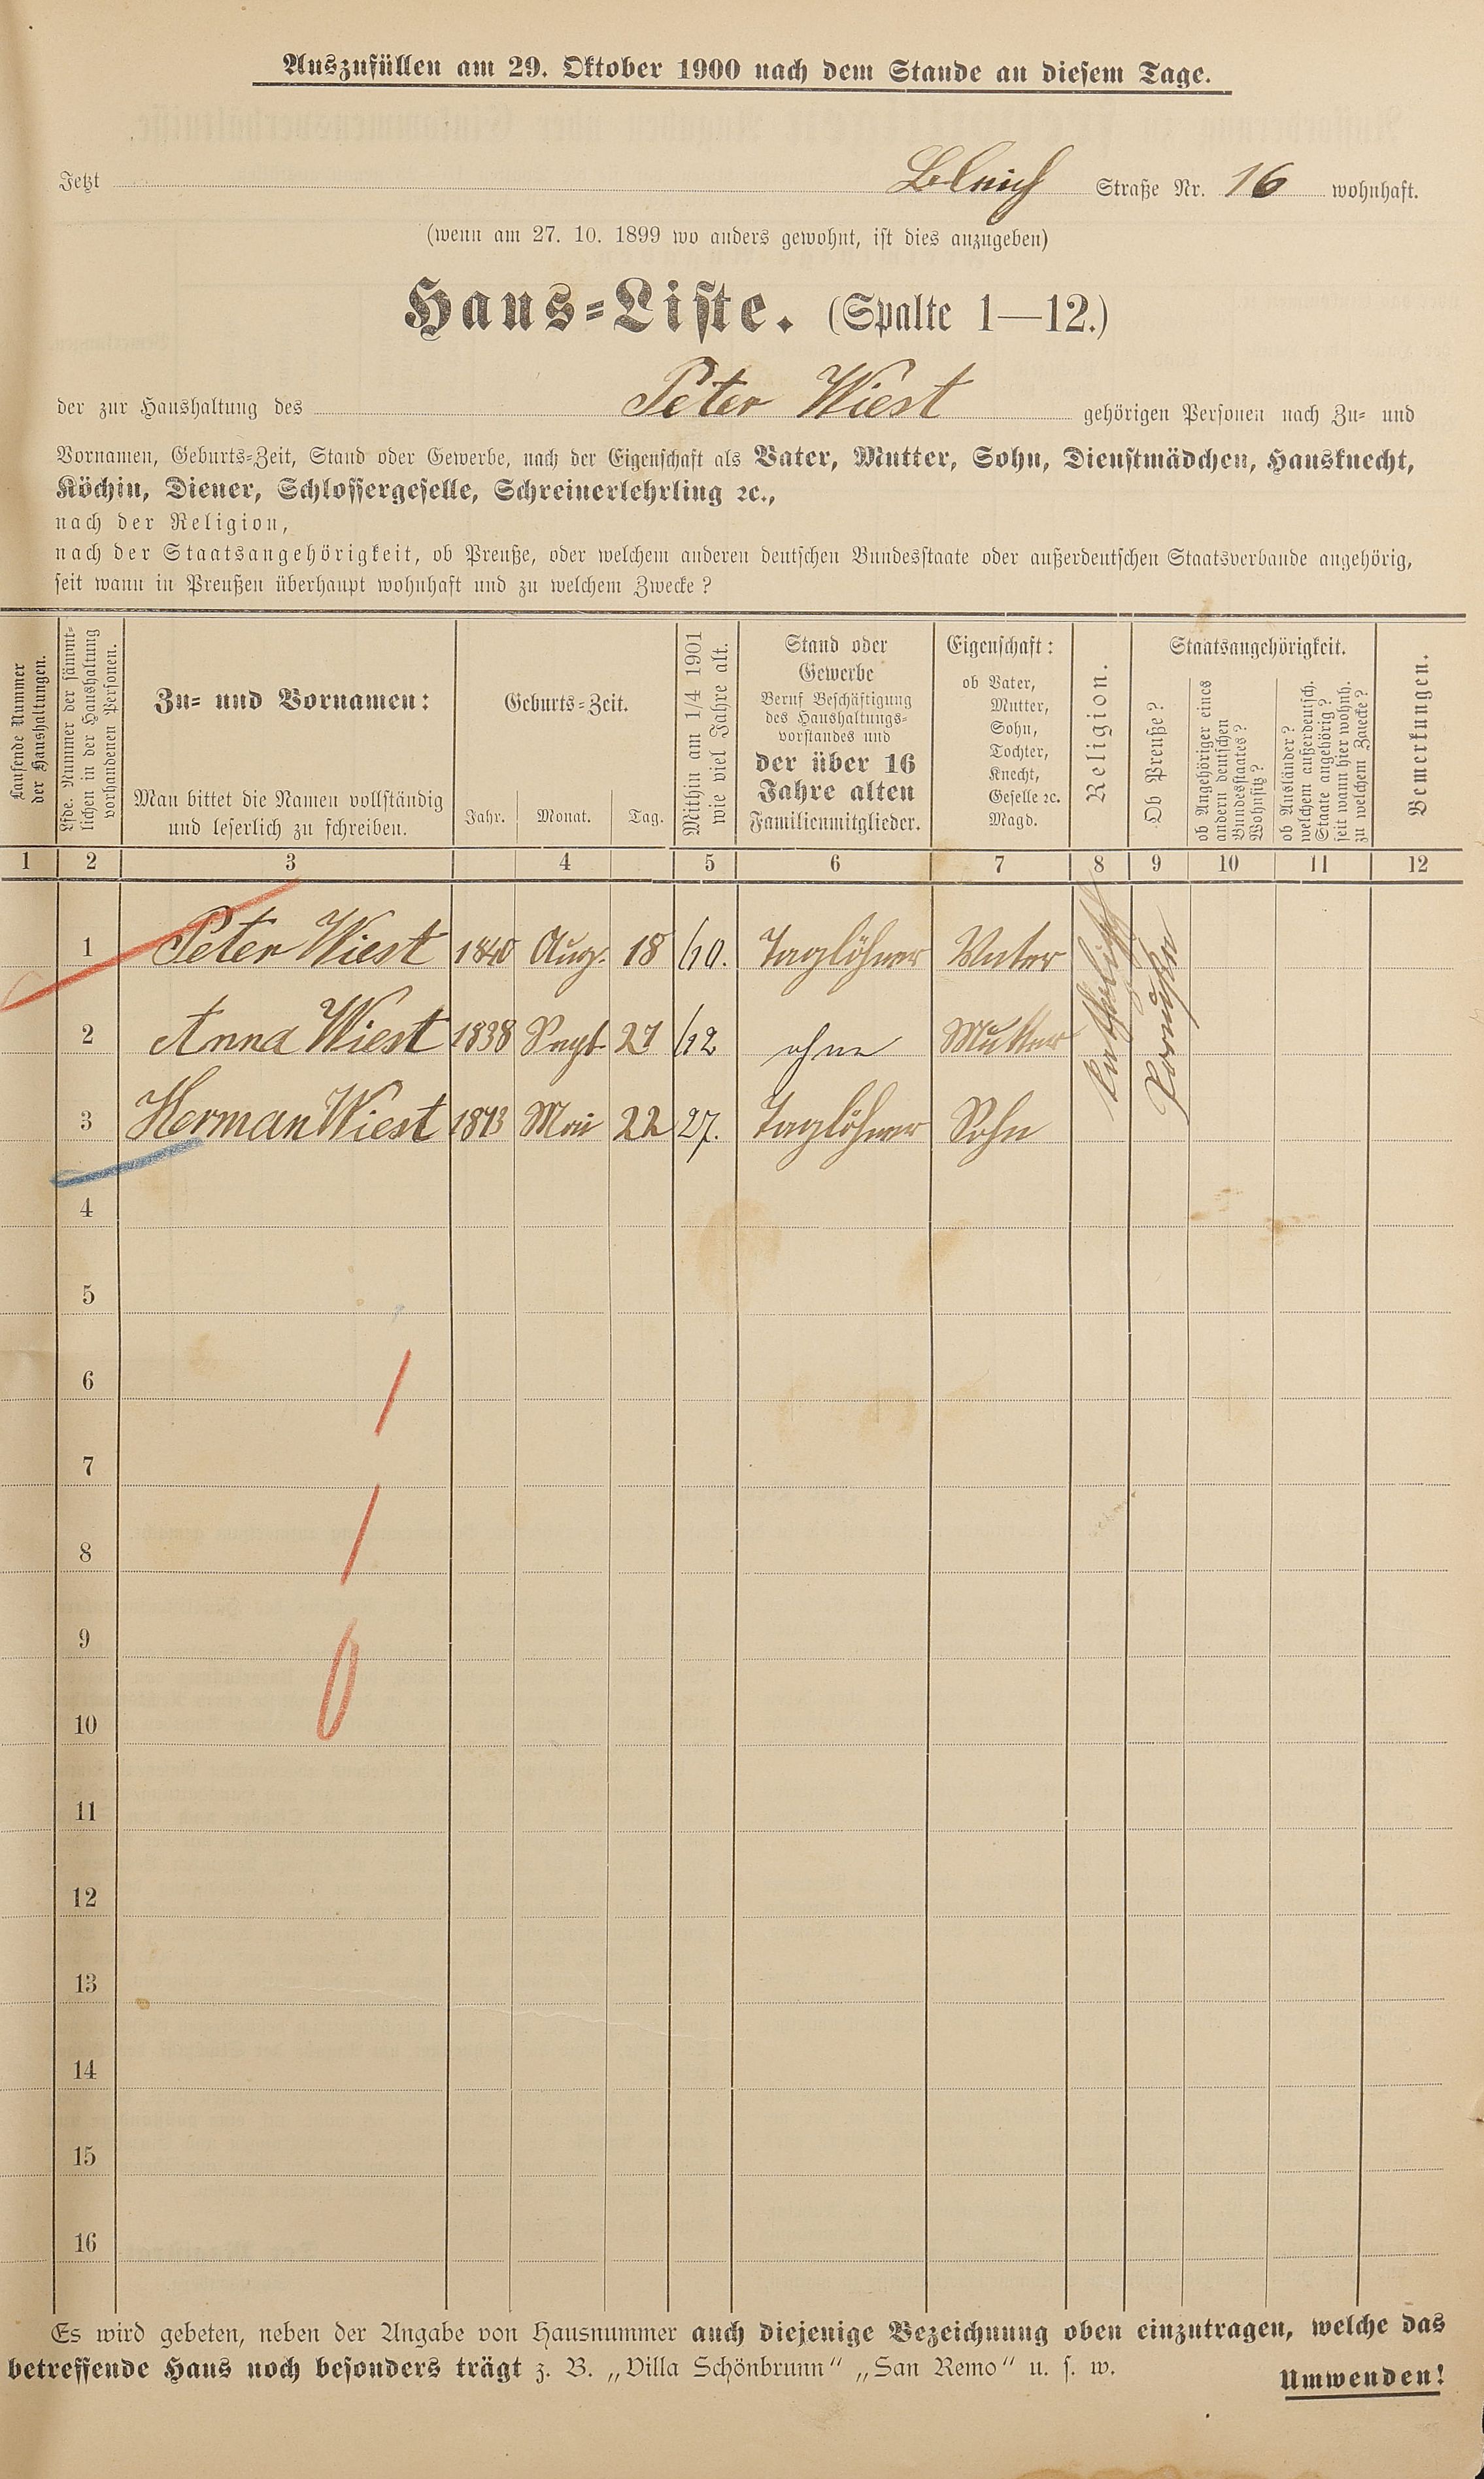 Auszufüllen am 29. Oktober 1900 nach dem Stande an diesem Tage.
Jetzt Straße Nr. 16 wohnhaft.
(wenn am 27. 10. 1899 wo anders gewohnt, ist dies anzugeben)
Haus-Liste. (Spalte 1—12.)
der zur Haushaltung des Peter Wiest gehörigen Personen nach Zu- und
Vornamen, Geburts-Zeit, Stand oder Gewerbe, nach der Eigenschaft als Vater, Mutter, Sohn, Dienstmädchen, Hausknecht,
Köchin, Diener, Schlossergeselle, Schreinerlehrling ꝛc.,
nach der Religion,
nach der Staatsangehörigkeit, ob Preuße, oder welchem anderen deutschen Bundesstaate oder außerdeutschen Staatsverbande angehörig,
seit wann in Preußen überhaupt wohnhaft und zu welchem Zwecke?
Laufende Nummer
der Haushaltungen.
Lfde. Nummer der sämmt-
lichen in der Haushaltung
vorhandenen Personen.
Zu- und Vornamen:
Man bittet die Namen vollständig
und leserlich zu schreiben.
Geburts-Zeit.
Jahr. Monat. Tag.
Mithin am 1/4 1901
wie viel Jahre alt.
Stand oder
Gewerbe
Beruf Beschäftigung
des Haushaltungs-
vorstandes und
der über 16
Jahre alten
Familienmitglieder.
Eigenschaft:
ob Vater,
Mutter,
Sohn,
Tochter,
Knecht,
Geselle ꝛc.
Magd.
Religion.
Staatsangehörigkeit.
Ob Preuße?
ob Angehöriger eines
andern deutschen
Bundesstaates?
Wohnsitz?
ob Ausländer?
welchem außerdeutsch.
Staate angehörig?
seit wann hier wohnh.
zu welchem Zwecke?
Bemerkungen.
1 2 3 4 5 6 7 8 9 10 11 12
1 Peter Wiest 1840 Aug. 18 60. Taglöhner Vater
2 Anna Wiest 1838 Sept 27 62 ohne Mutter
3 Herman Wiest 1873 Mai 22 27. Taglöhner Sohn
Katholisch
Preuße
4
5
6
7
8
9
10
11
12
13
14
15
16
Es wird gebeten, neben der Angabe von Hausnummer auch diejenige Bezeichnung oben einzutragen, welche das
betreffende Haus noch besonders trägt z. B. „Villa Schönbrunn“ „San Remo“ u. s. w.
Umwenden!